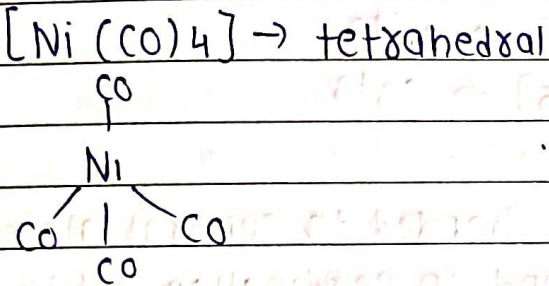 [Ni (CO)4] → tetrahedral
CO
Ni
CO CO
CO